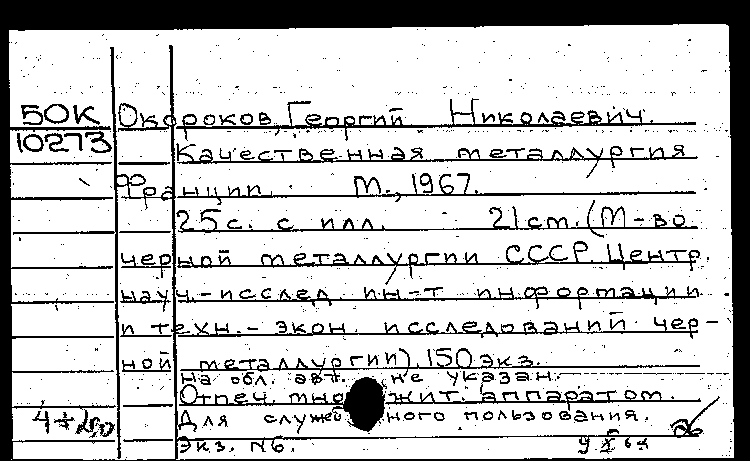 50К Окороков, Георгий Николаевич.
10273
Качественная металлургия
Франции. М., 1967.
25 с. с илл. 21 cm. (М-во
черной металлургии СССР. Центр.
науч.-исслед. ин-т информации
и техн.-экон. исследований чер-
ной металлургии). 150 экз.
На обл. авт. не указан.
Отпеч. множит. аппаратом.
Для служебного пользования.
Экз. №6.